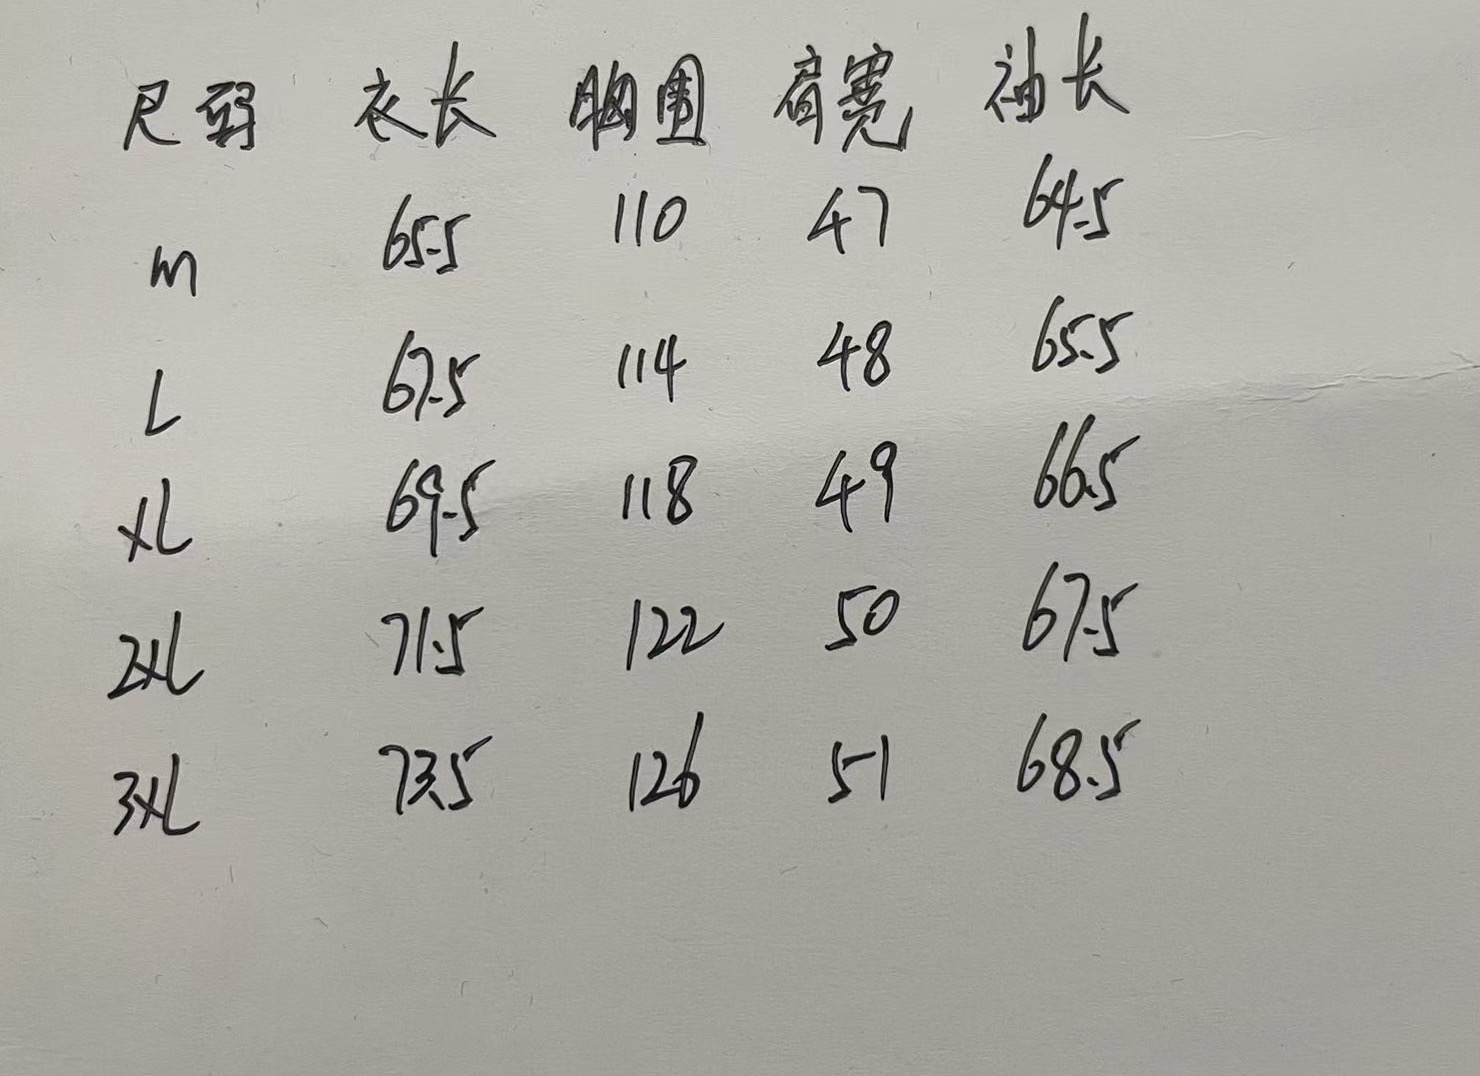 尺码 衣长 胸围 肩宽 袖长
m 65.5 110 47 64.5
L 67.5 114 48 65.5
XL 69.5 118 49 66.5
2XL 71.5 122 50 67.5
3XL 73.5 126 51 68.5